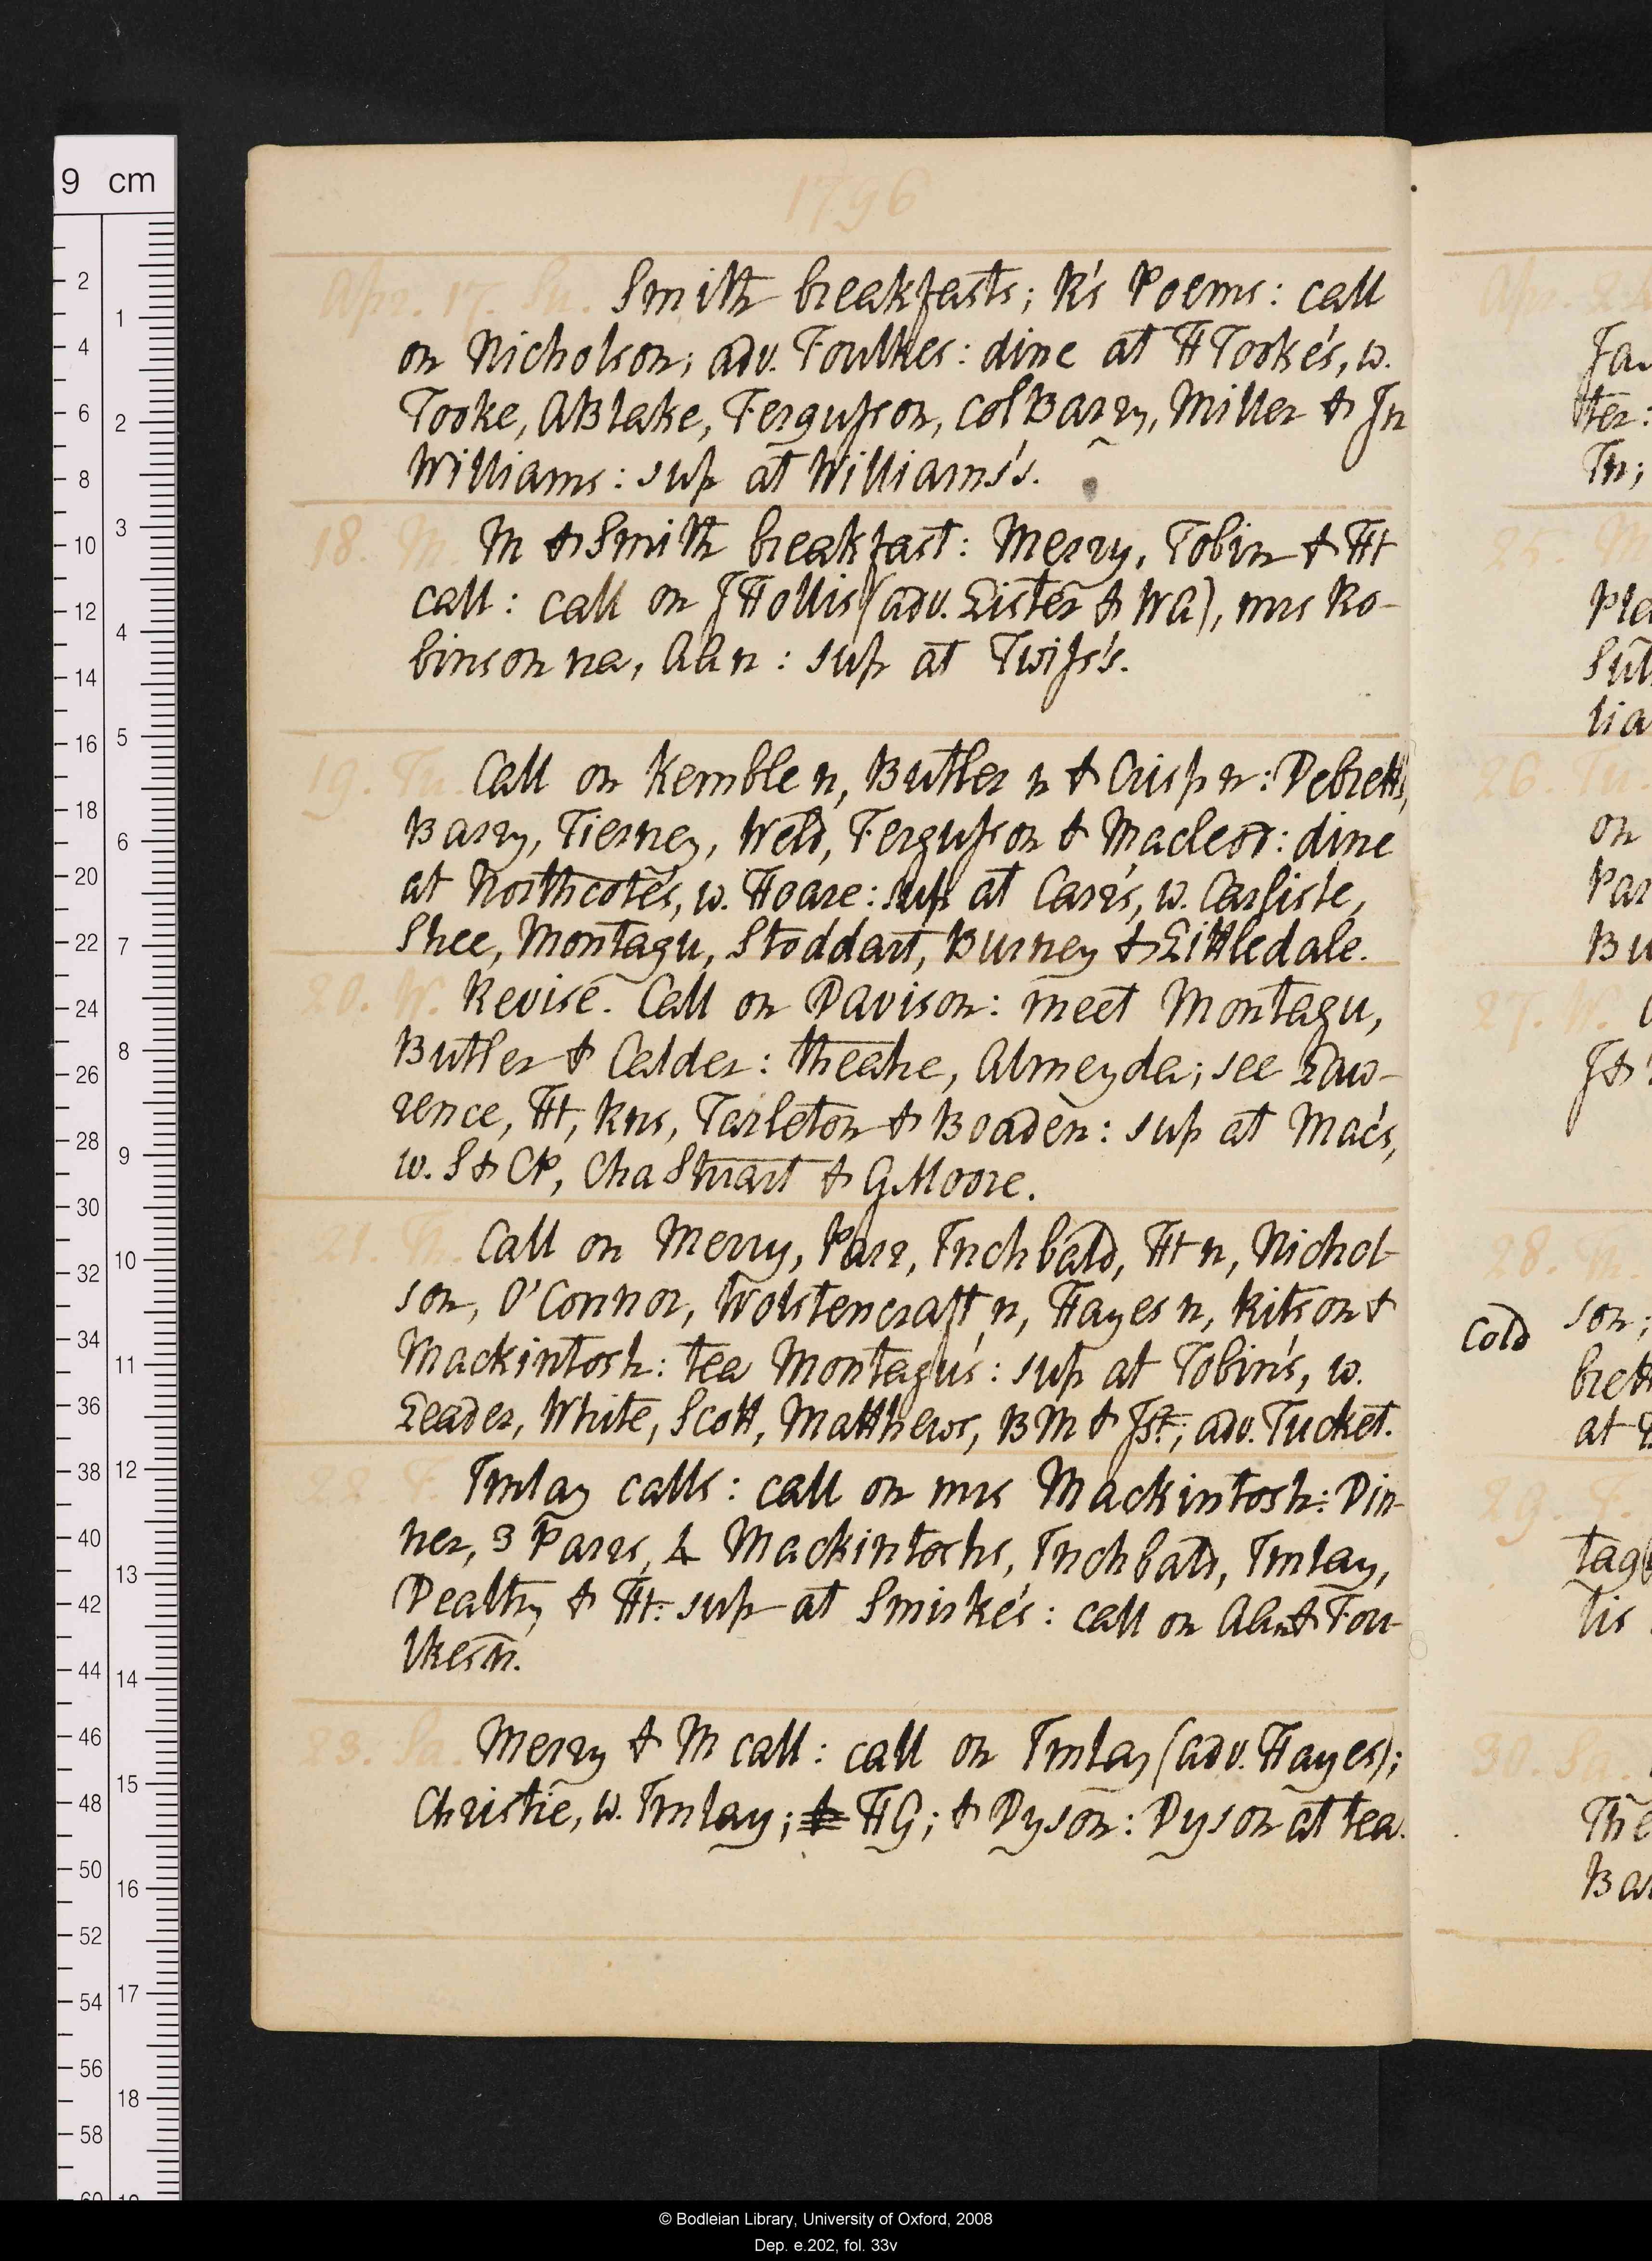 1796
Apr. 17. Su. Smith breakfasts; R's Poems: call
on Nicholson; adv. Foulkes: dine at H Tooke's, w.
Tooke, A Blake, Fergusson, col Barry, Miller & Jn
Williams: sup at Williams's.
18. M. M & Smith breakfast: Merry, Tobin & Ht
call: call on J Hollis (adv. Lister & WA), mrs Ro-
binson na, AA n: sup at Twiss's.
19. Tu. Call on Kemble n, Butler n & Crisp n: Debrett's,
Barry, Tierney, Weld, Fergusson & Macleod: dine
at Northcote's, w. Hoare: sup at Carr's, w. Carlisle,
Shee, Montagu, Stoddart, Burney & Littledale.
20. W. Revise. Call on Davison: meet Montagu,
Butler & Calder: theatre, Almeyda; see Law-
rence, Ht, Rns, Tarleton & Boaden: sup at Mac's,
w. S & CP, Cha Stuart & G Moore.
21. Th. Call on Merry, Parr, Inchbald, Ht n, Nichol-
son, O'Connor, Wolstencraft n, Hayes n, Ritson &
Mackintosh: tea Montagu's: sup at Tobin's, w.
Leader, White, Scott, Matthews, BM & Jst; adv. Tucket.
22 F. Imlay calls: call on mrs Mackintosh: Din-
ner, 3 Parrs, 4 Mackintoshs, Inchbald, Imlay,
Dealtry & Ht: sup at Smirke's: call on AAn & Fou-
lkes n.
23. Sa. Merry & M call: call on Imlay (adv. Hayes);
Christie, w. Imlay; & HG; & Dyson: Dyson at tea.
Apr. 24
Ja
ter:
In;
25. M
Pla
Sut
lia
26. Tu.
on
Par
Bu
27. W.
J &
28. Th.
Cold son;
brett
at
29. F.
tag
lis
30. Sa.
The
Bar
9 cm
2
4
6
8
10
12
14
16
18
20
22
24
26
28
30
32
34
36
38
40
42
44
46
48
50
52
54
56
58
1
2
3
4
5
6
7
8
9
10
11
12
13
14
15
16
17
18
© Bodleian Library, University of Oxford, 2008
Dep. e.202, fol. 33v